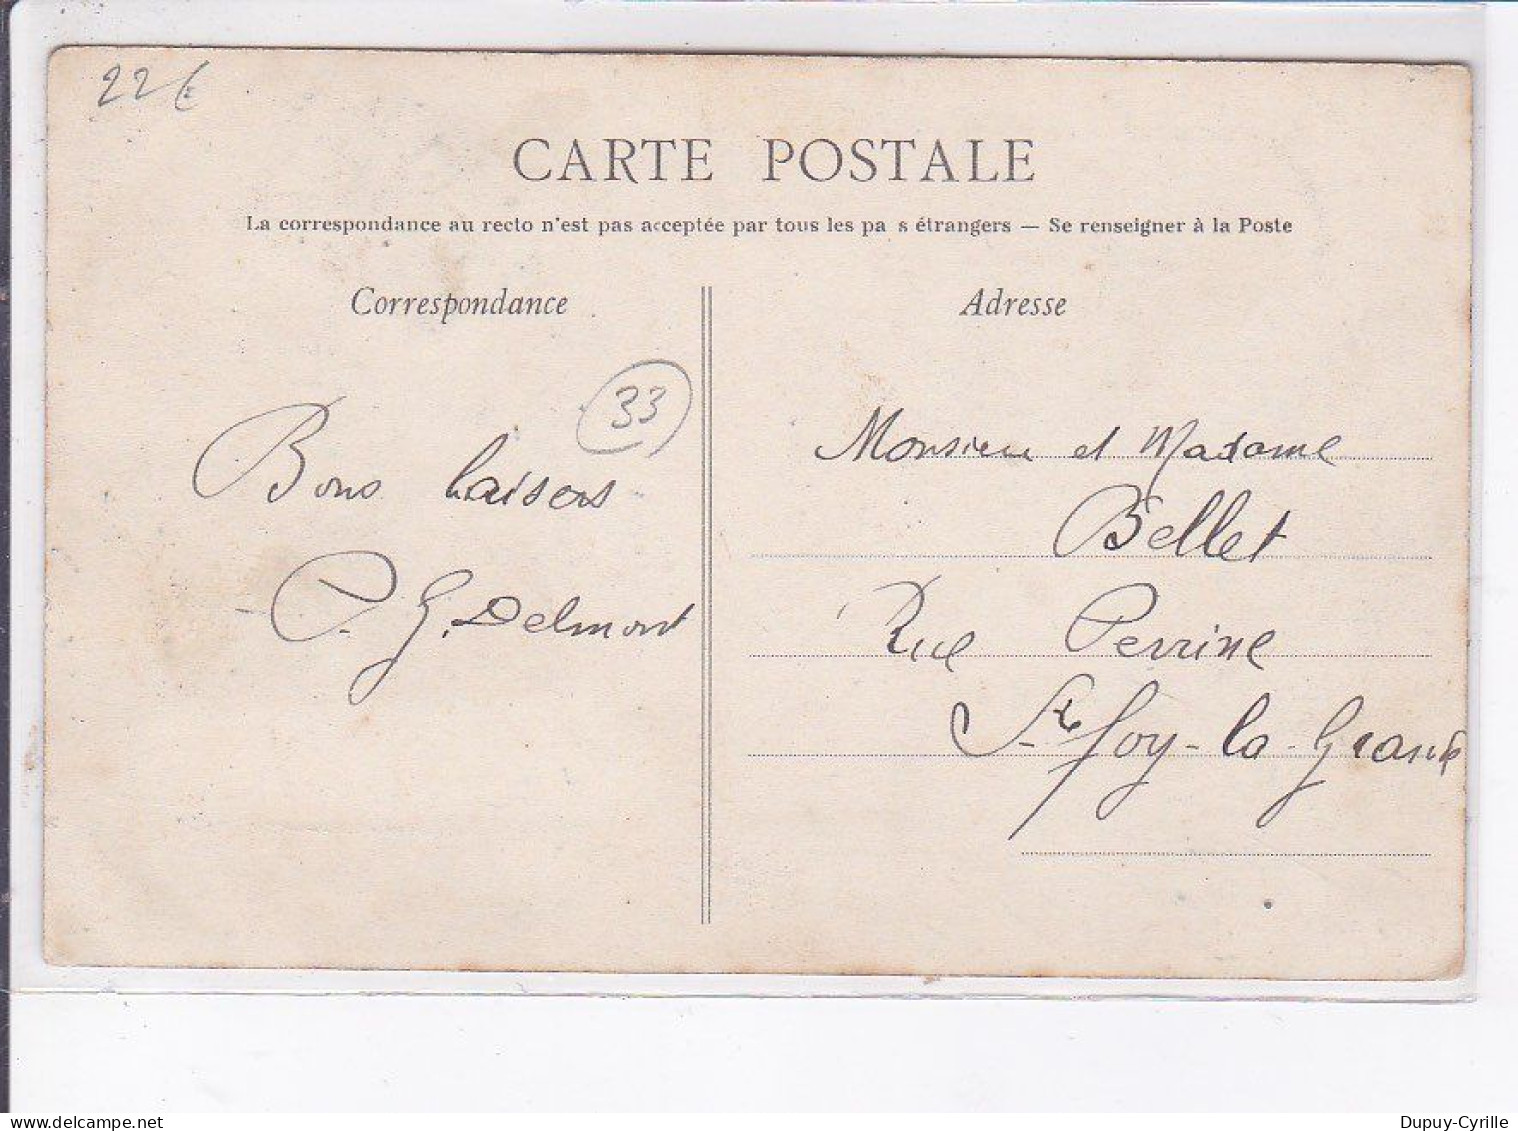 22€
CARTE POSTALE
La correspondance au recto n'est pas acceptée par tous les pa s étrangers — Se renseigner à la Poste
Correspondance
33
Bons baisers
P. G. Delmont
Adresse
Monsieur et Madame
Bellet
Rue Perrine
Ste foy-la-Grande
www.delcampe.net
Dupuy-Cyrille